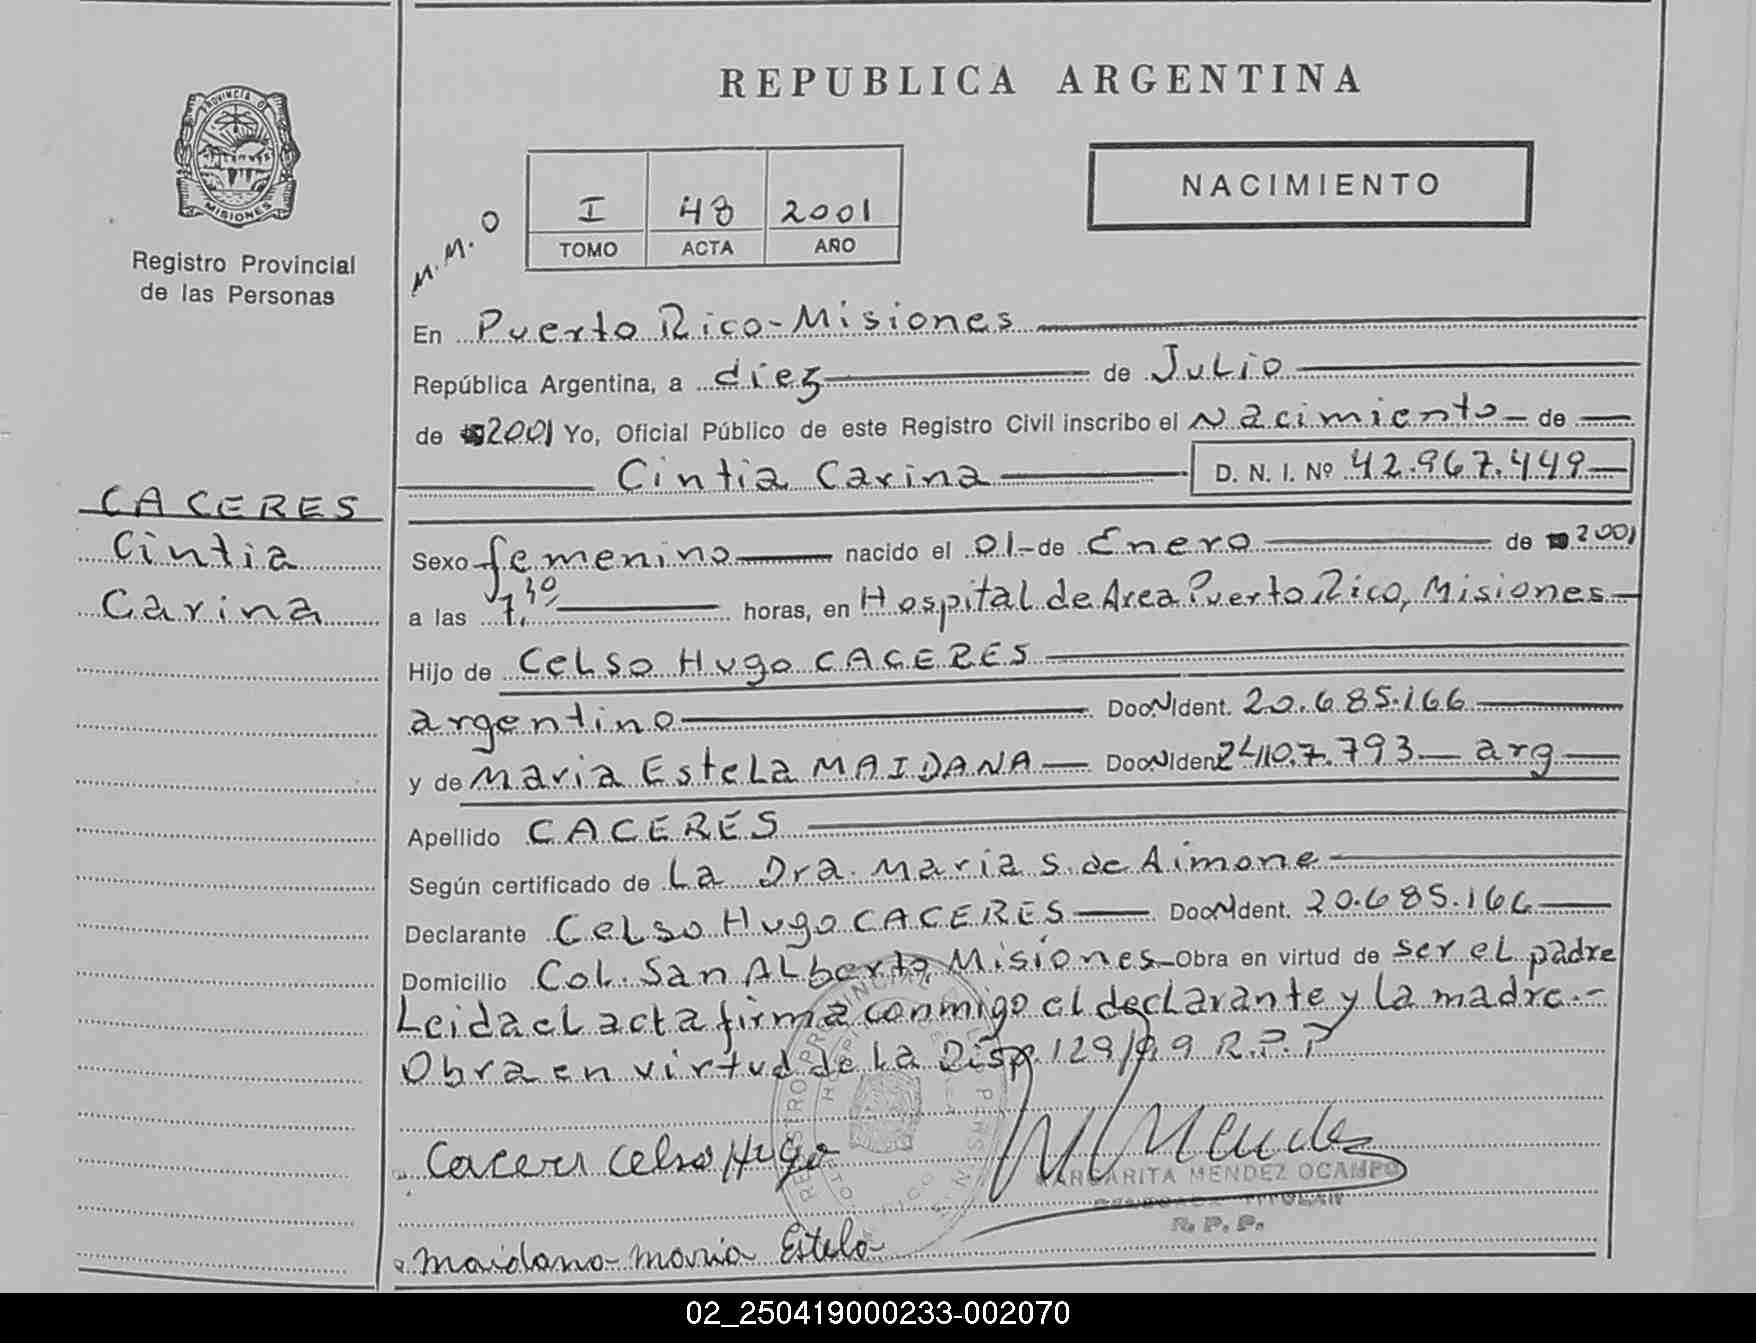 REPUBLICA ARGENTINA
PROVINCIA D
MISIONES
Registro Provincial
de las Personas
M.M.O
I 48 2001
TOMO ACTA AÑO
NACIMIENTO
En Puerto Rico-Misiones
República Argentina, a diez de Julio
de 2001 Yo, Oficial Público de este Registro Civil inscribo el Nacimiento de
Cintia Carina D. N. I. Nº 42.967.449
CACERES
Cintia
Carina
Sexo femenino nacido el 01 de Enero de 2001
a las 7,30 horas, en Hospital de Area Puerto Rico, Misiones
Hijo de Celso Hugo CACERES
argentino Doc.N Ident. 20.685.166
y de Maria Estela MAIDANA Doc.N Iden 24.107.793 arg
Apellido CACERES
Según certificado de La Dra. Maria S. de Aimone
Declarante Celso Hugo CACERES Doc.N Ident. 20.685.166
Domicilio Col. San Alberto, Misiones Obra en virtud de ser el padre
Leida el acta firma conmigo el declarante y la madre.-
Obra en virtud de la Disp. 129/99 R.P.P
Caceres Celso Hugo
MARGARITA MENDEZ OCAMPO
TITULAR
R. P. P.
Maidana Maria Estela
02_250419000233-002070